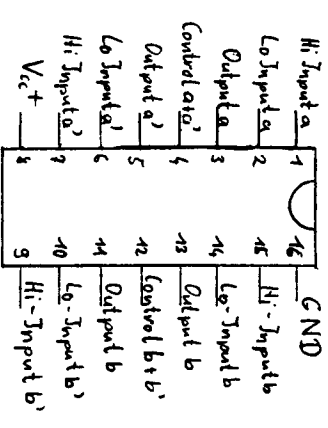 Hi Input a
Lo Input a
Output a
Control a+a'
Output a'
Lo Input a'
Hi Input a'
Vcc +
1 2 3 4 5 6 7 8
16 15 14 13 12 11 10 9
GND
Hi-Input b
Lo-Input b
Output b
Control b+b'
Output b
Lo-Input b'
Hi-Input b'